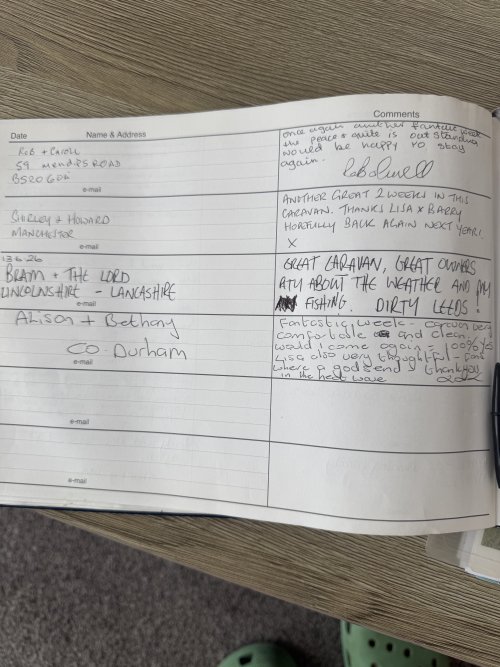 Comments
Date Name & Address
once again another fantastic week
the peace & quite is outstanding
would be happy to stay
again.
Rob + Carol
59 MENDIPS ROAD
e-mail
ANOTHER GREAT 2 WEEKS IN THIS
CARAVAN. THANKS LISA & BARRY
HOPFULLY BACK AGAIN NEXT YEAR!
X
SHIRLEY & HOWARD
MANCHESTER
e-mail
13.6.26
BRAM + THE LORD
LINCOLNSHIRE - LANCASHIRE
e-mail
GREAT CARAVAN, GREAT OWNERS
PITY ABOUT THE WEATHER AND MY
FISHING. DIRTY LEEDS!
Alison + Bethany
CO. Durham
e-mail
Fantastic week - caravan very
comfortable and clean
would I come again - 100% yes
Lisa also very thoughtful - fans
where a godsend thankyou
in the heat wave
e-mail
e-mail